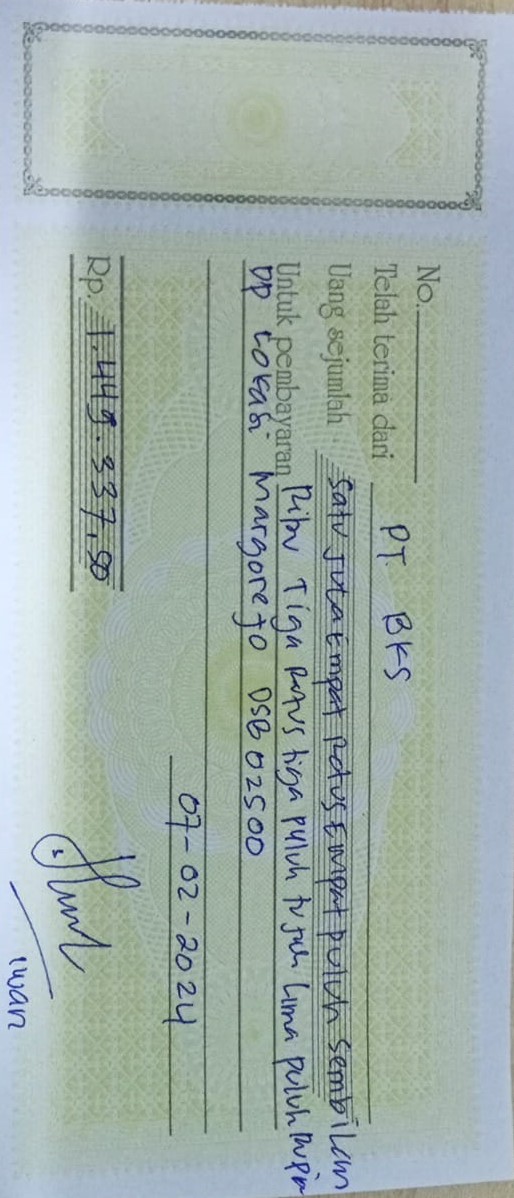 No.
Telah terima dari PT. BKS
Uang sejumlah Satu juta Empat Ratus Empat puluh sembilan
Untuk pembayaran Ribu Tiga Ratus tiga puluh tujuh Lima puluh Rupia
DP Lokasi Margorejo DSB 02500
07-02-2024
Rp. 1.449.337,50
iwan